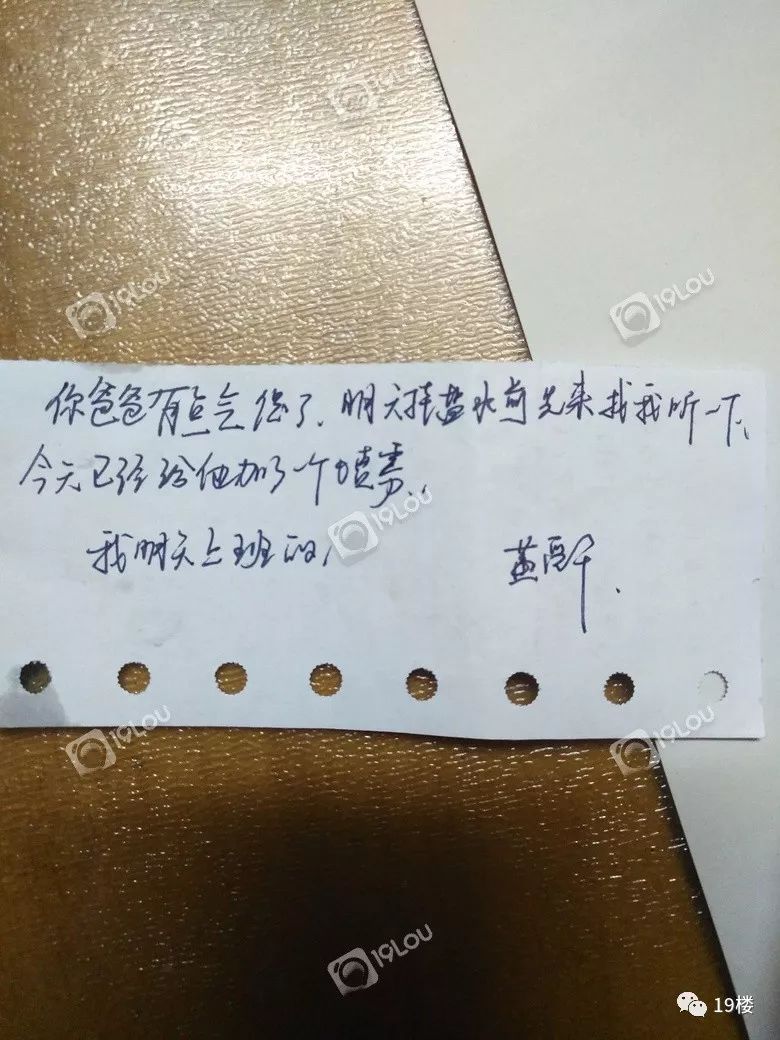 19LOU
19LOU
19LOU
你爸爸有点气促了、明天挂盐水前先来找我听一下、
今天已经给他加了一个喷雾.
19LOU
我明天上班的,
19LOU
19LOU
19LOU
19楼